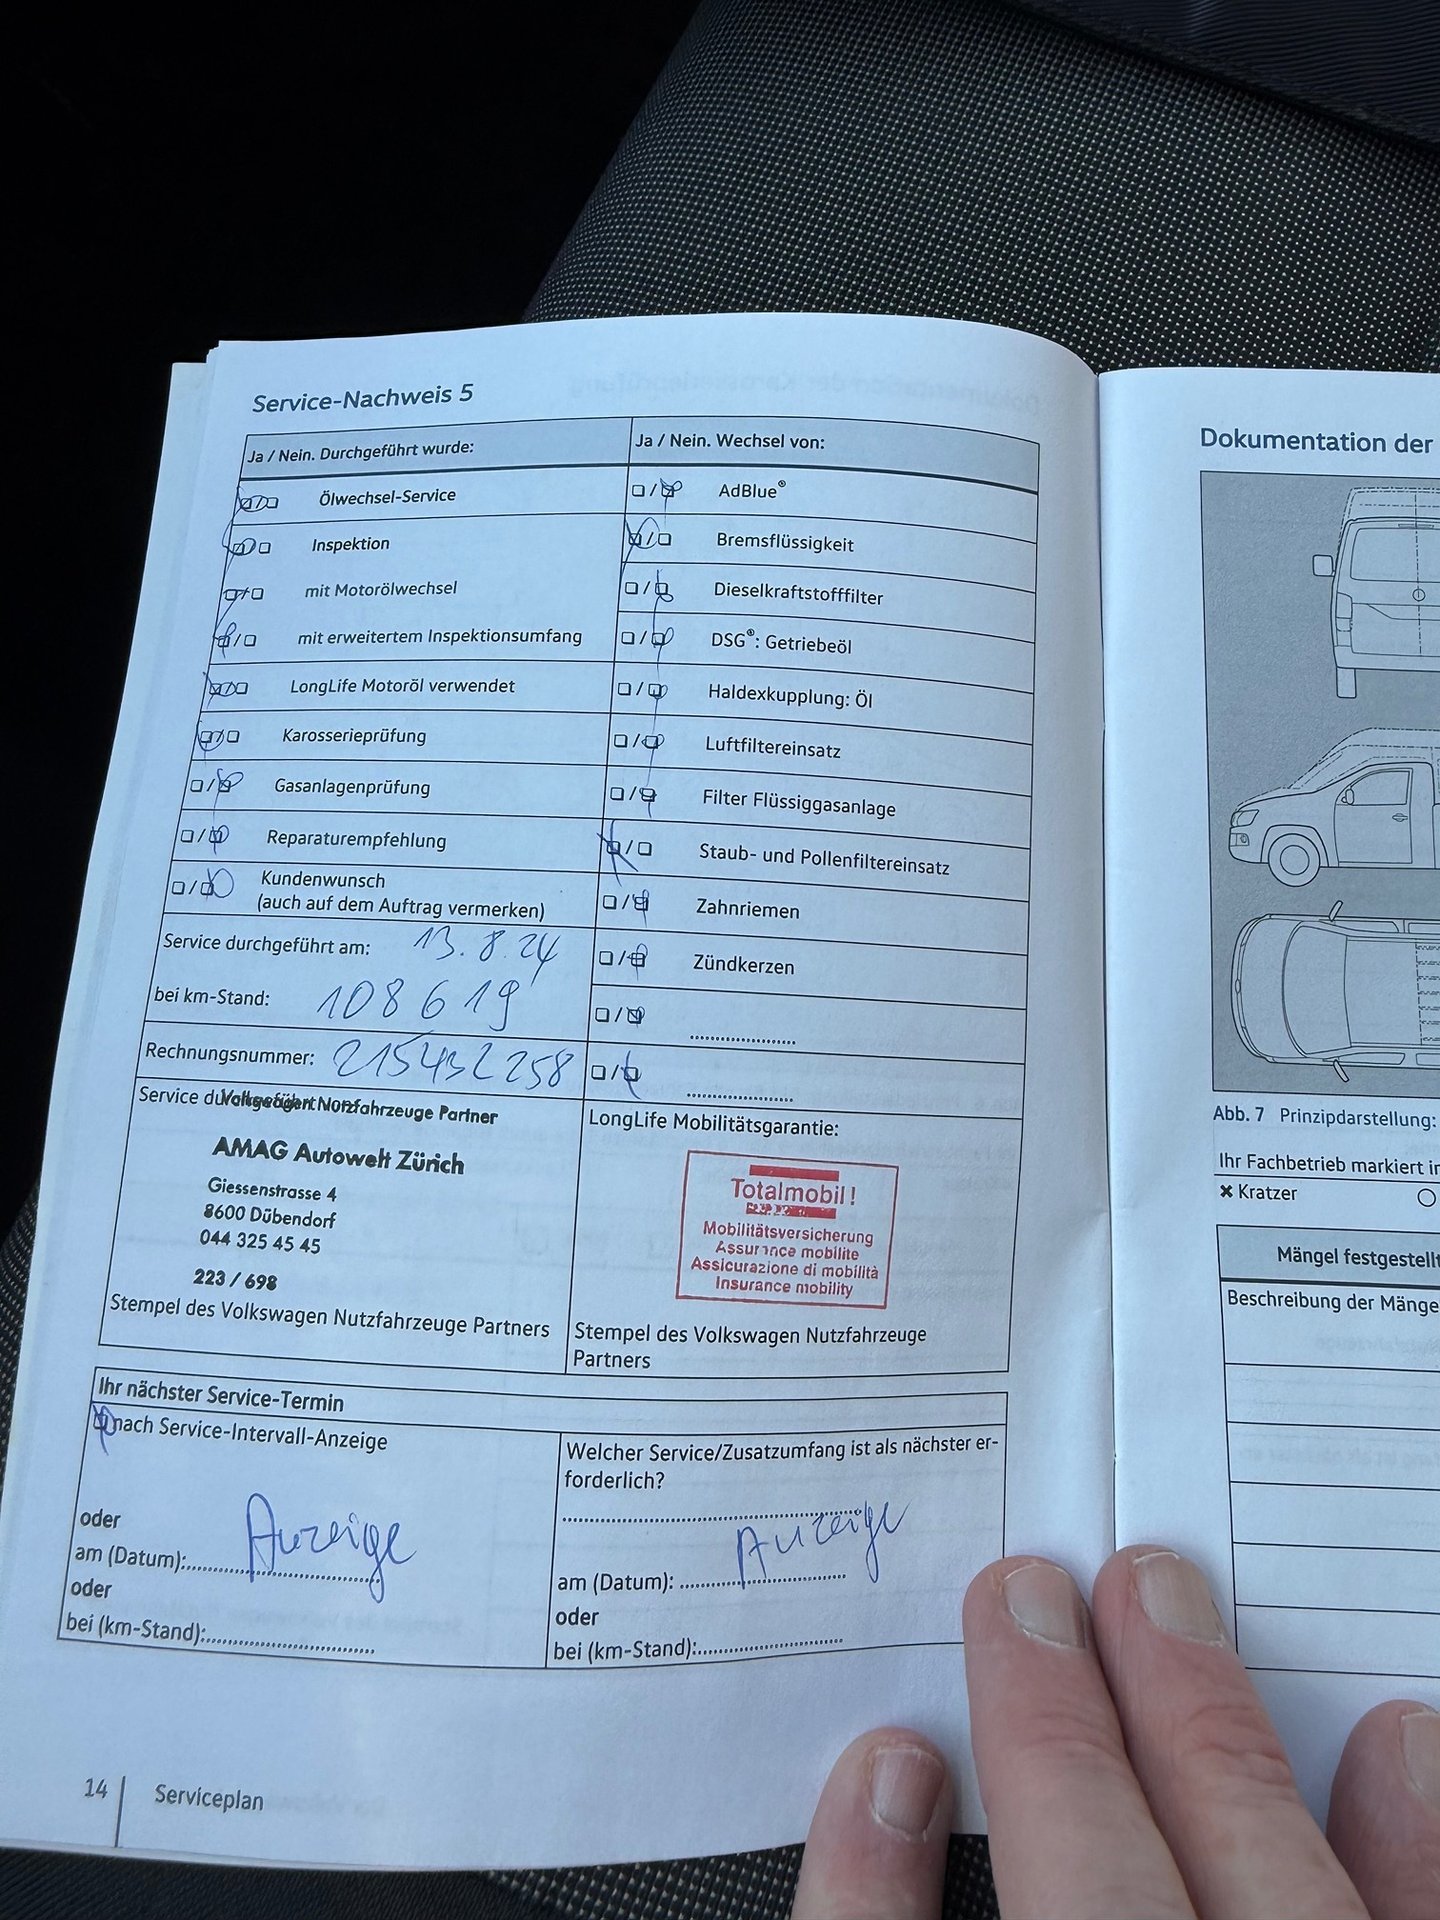 Service-Nachweis 5
Ja / Nein. Durchgeführt wurde:
Ölwechsel-Service
Inspektion
mit Motorölwechsel
mit erweitertem Inspektionsumfang
LongLife Motoröl verwendet
Karosserieprüfung
Gasanlagenprüfung
Reparaturempfehlung
Kundenwunsch
(auch auf dem Auftrag vermerken)
Service durchgeführt am: 13.8.24
bei km-Stand: 108619
Rechnungsnummer: 215432258
Ja / Nein. Wechsel von:
AdBlue®
Bremsflüssigkeit
Dieselkraftstofffilter
DSG®: Getriebeöl
Haldexkupplung: Öl
Luftfiltereinsatz
Filter Flüssiggasanlage
Staub- und Pollenfiltereinsatz
Zahnriemen
Zündkerzen
Service durchgeführt von:
Volkswagen Nutzfahrzeuge Partner
AMAG Autowelt Zürich
Giessenstrasse 4
8600 Dübendorf
044 325 45 45
223 / 698
Stempel des Volkswagen Nutzfahrzeuge Partners
LongLife Mobilitätsgarantie:
Totalmobil!
Mobilitätsversicherung
Assurance mobilite
Assicurazione di mobilità
Insurance mobility
Stempel des Volkswagen Nutzfahrzeuge
Partners
Ihr nächster Service-Termin
nach Service-Intervall-Anzeige
oder
am (Datum): Anzeige
oder
bei (km-Stand):
Welcher Service/Zusatzumfang ist als nächster er-
forderlich?
Anzeige
am (Datum):
oder
bei (km-Stand):
14 Serviceplan
Dokumentation der
Abb. 7 Prinzipdarstellung:
Ihr Fachbetrieb markiert
Kratzer
Mängel festgestellt
Beschreibung der Mängel